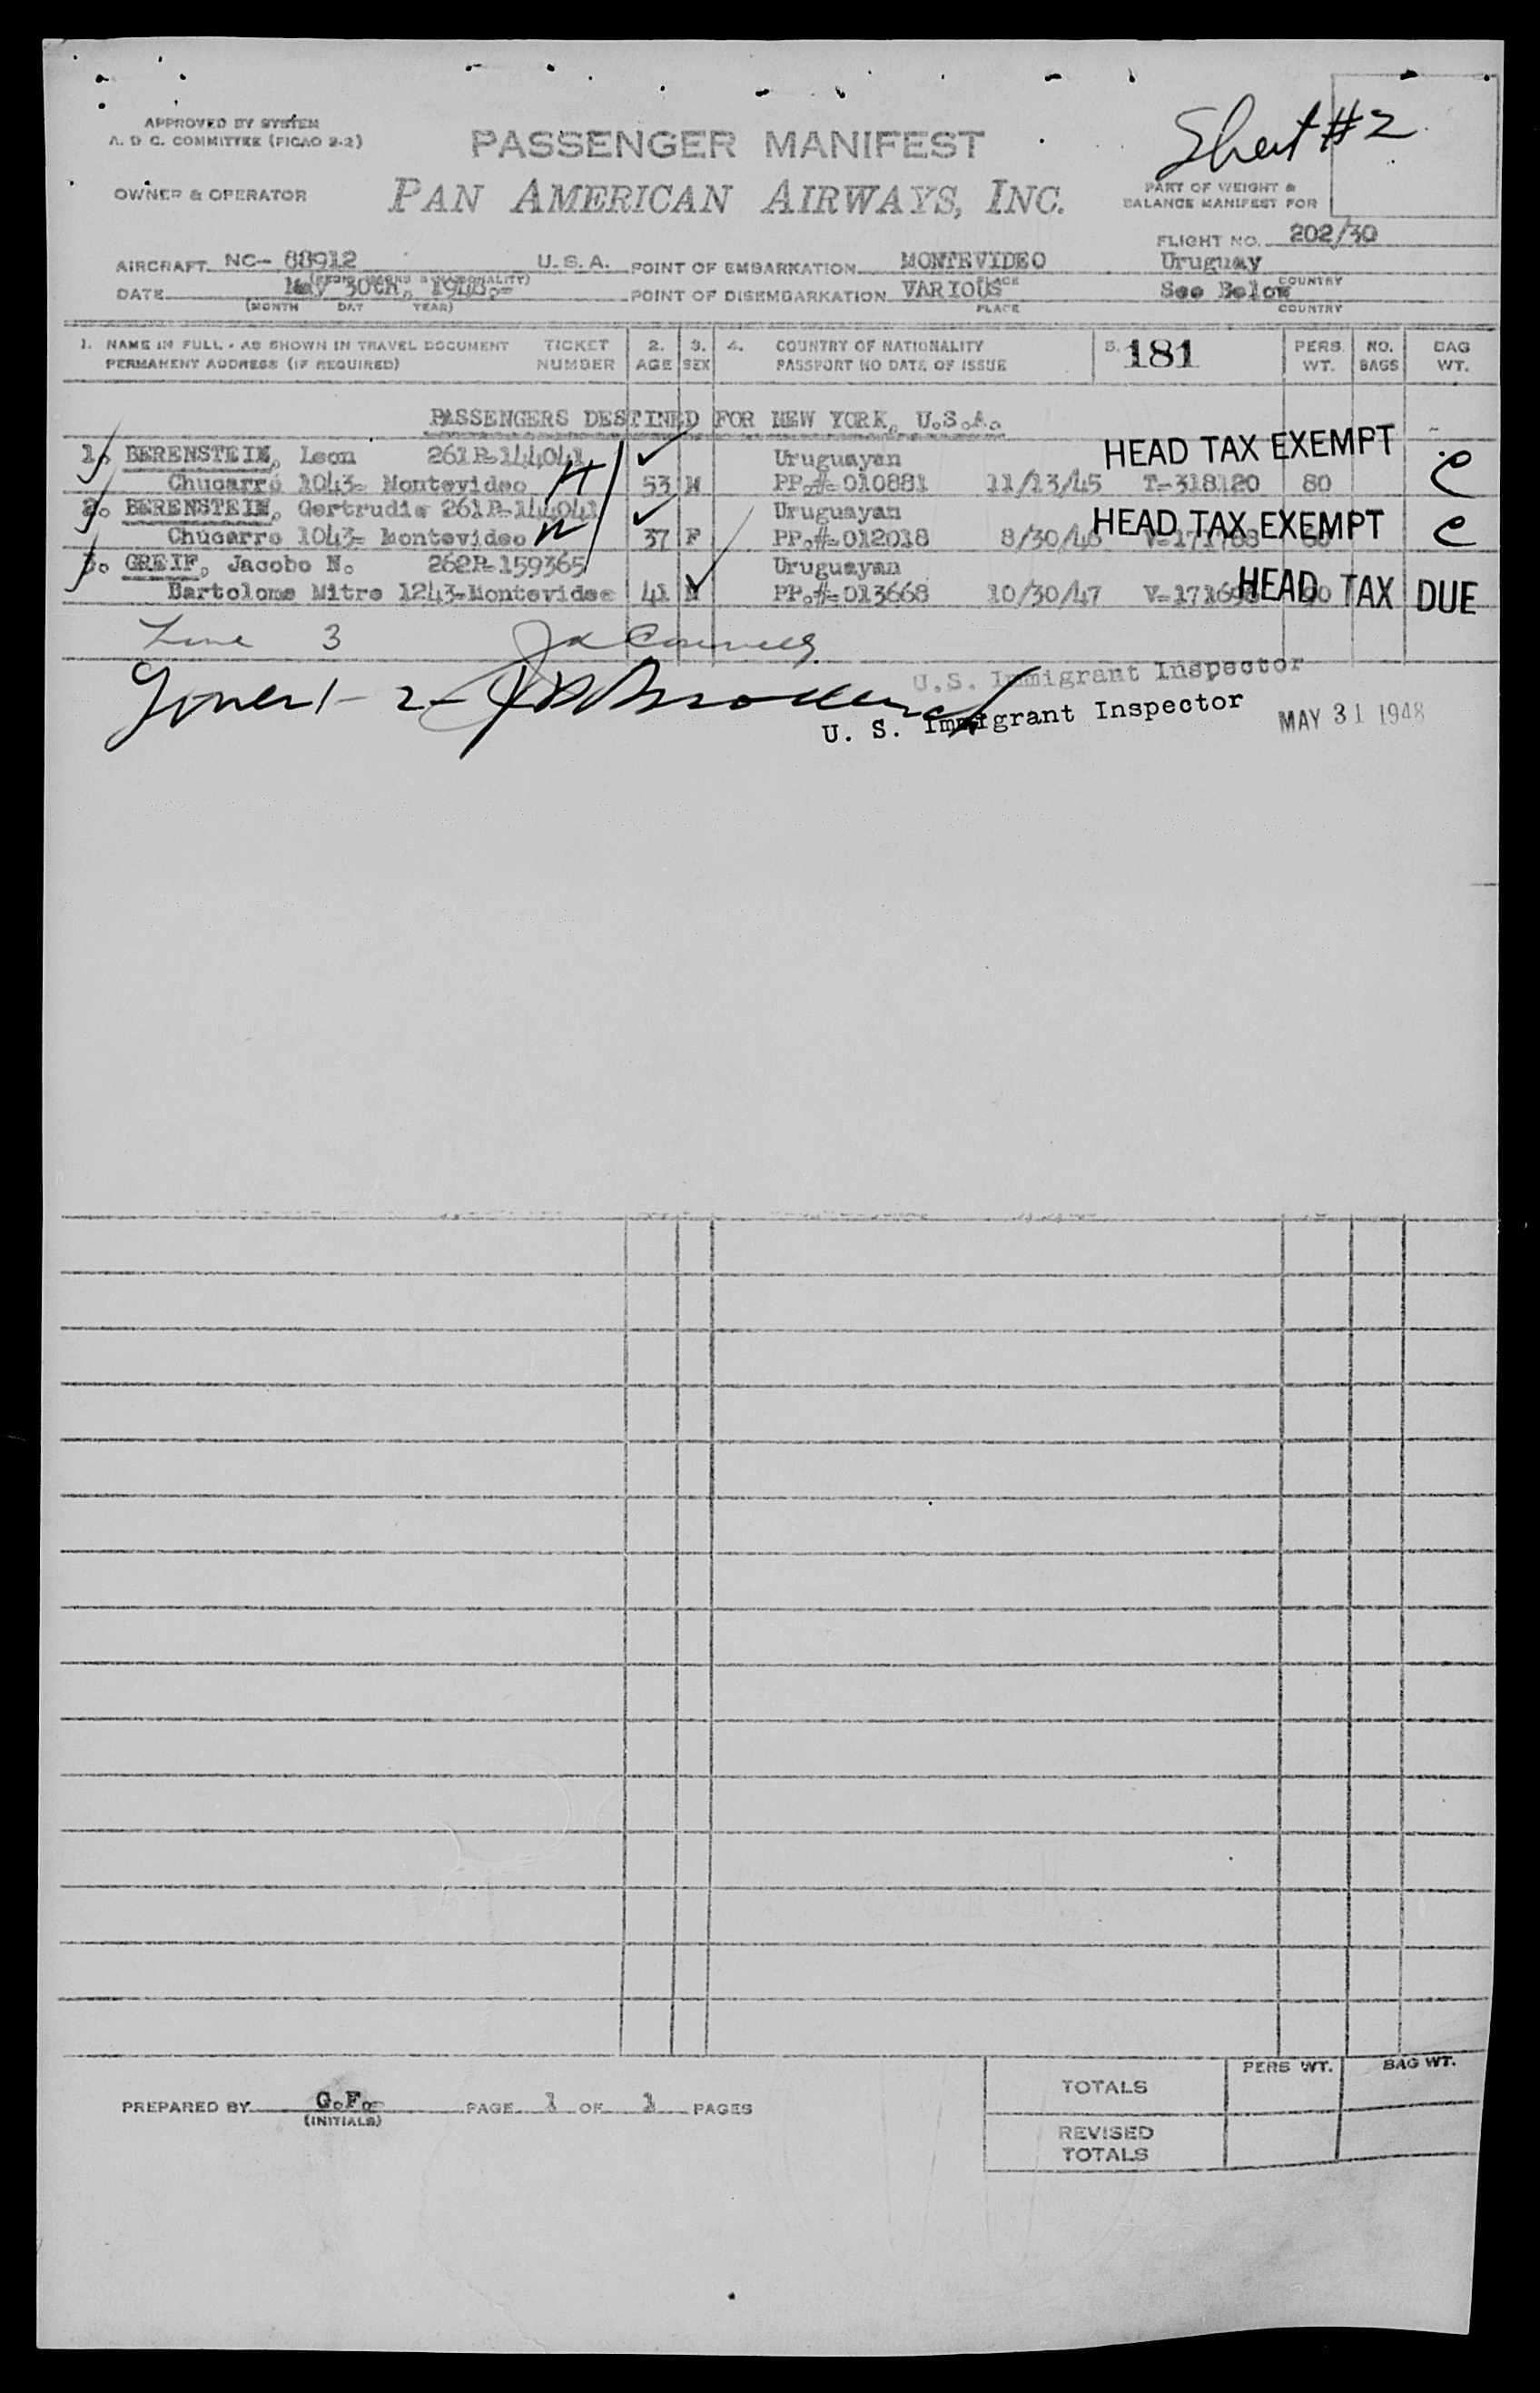 Sheet #2
APPROVED BY SYSTEM
A. D C. COMMITTEE (PICAO 2-2)
PASSENGER MANIFEST
OWNER & OPERATOR
PAN AMERICAN AIRWAYS, INC.
PART OF WEIGHT &
BALANCE MANIFEST FOR
FLIGHT NO. 202/30
AIRCRAFT NC- 88912 U.S.A. POINT OF EMBARKATION MONTEVIDEO Uruguay
DATE May 30th, POINT OF DISEMBARKATION VARIOUS See Below
(MONTH DAY YEAR) PLACE COUNTRY
1. NAME IN FULL - AS SHOWN IN TRAVEL DOCUMENT TICKET 2. 3. 4. COUNTRY OF NATIONALITY 5. 181 PERS. NO. BAG
PERMANENT ADDRESS (IF REQUIRED) NUMBER AGE SEX PASSPORT NO DATE OF ISSUE WT. BAGS WT.
PASSENGERS DESTINED FOR NEW YORK, U.S.A.
1. BERENSTEIN, Leon 261P-144041 Uruguayan HEAD TAX EXEMPT
Chucarro 1043- Montevideo H 53 M PP.#-010881 11/13/45 T-318120 80 C
2. BERENSTEIN, Gertrudis 261P-144041 Uruguayan HEAD TAX EXEMPT C
Chucarro 1043- Montevideo W 37 F PP.#-012018
3. GREIF, Jacobo N. 262P-159365 Uruguayan HEAD TAX DUE
Bartolome Mitre 1243-Montevideo 41 M PP.#-013668 10/30/47
Line 3
U.S. Immigrant Inspector
1-2
U. S. Immigrant Inspector MAY 31 1948
PREPARED BY G.F. PAGE 1 OF 1 PAGES
(INITIALS)
PERS WT. BAG WT.
TOTALS
REVISED
TOTALS